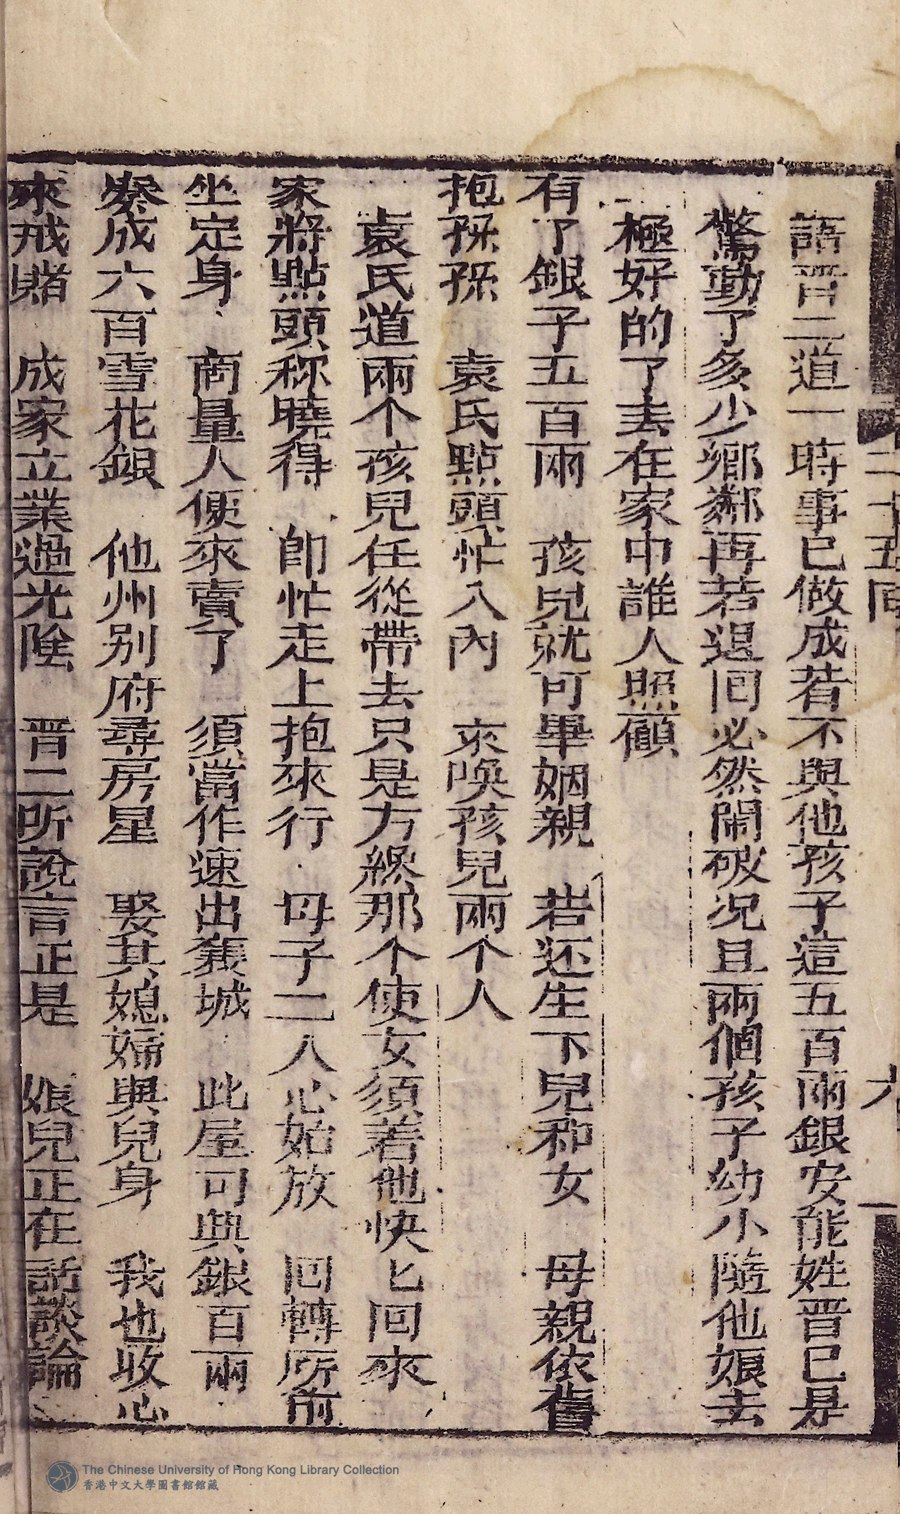 二十五回　九
語晋二道一時事已做成若不與他孩子這五百兩銀安能姓晋已是
驚動了多少鄉鄰再若退囘必然鬧破况且兩個孩子幼小隨他娘去
極好的了去在家中誰人照顧
有了銀子五百兩　孩兒就可畢姻親　若还生下兒和女　母親依舊
抱孫孫　袁氏點頭忙入內　來喚孩兒兩个人
袁氏道兩个孩兒任從帶去只是方縂那个使女須着他快匕回來
家將點頭称曉得　即忙走上抱來行　母子二人心始放　回轉所前
坐定身　商量人便來賣了　須當作速出襄城　此屋可與銀百兩
奏成六百雪花銀　他州别府尋房星　娶其媳婦與兒身　我也收心
來戒賭　成家立業過光陰　晋二听說言正是　娘兒正在話談論
The Chinese University of Hong Kong Library Collection
香港中文大學圖書館館藏